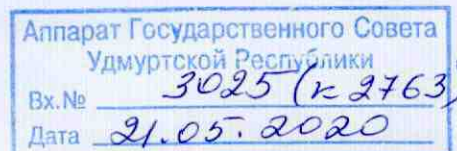 Аппарат Государственного Совета
Удмуртской Республики
Вх.№ 3025 (к 2763)
Дата 21.05.2020